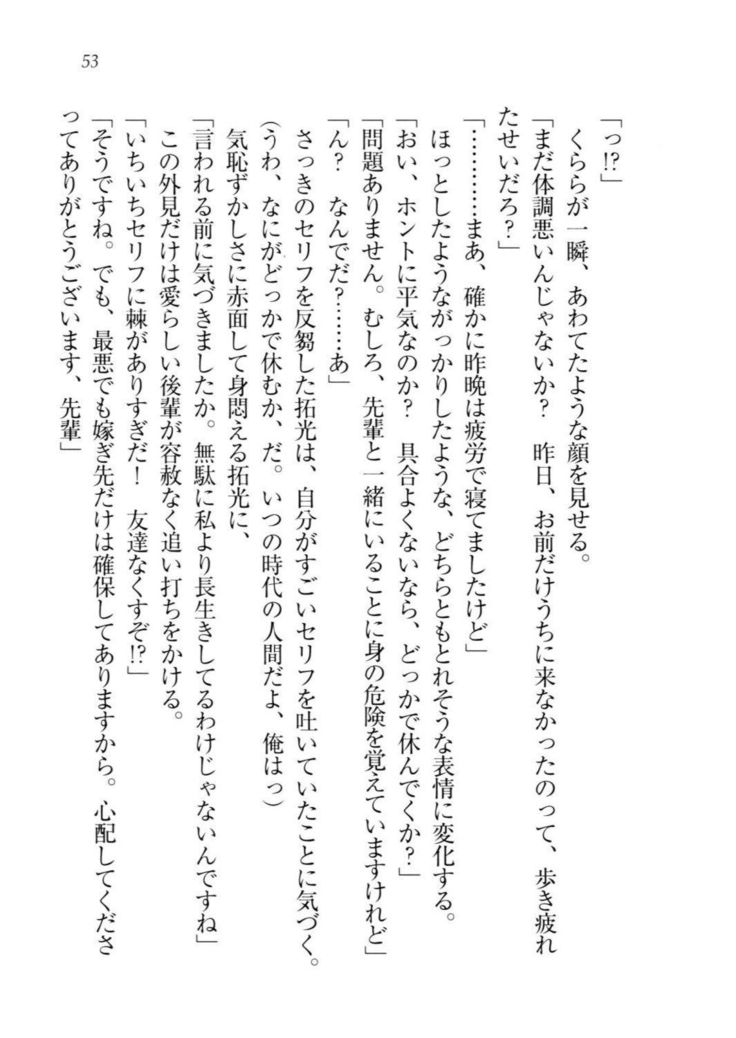 53
「っ!?」
　くららが一瞬、あわてたような顔を見せる。
「まだ体調悪いんじゃないか？　昨日、お前だけうちに来なかったのって、歩き疲れ
たせいだろ？」
「…………まあ、確かに昨晩は疲労で寝てましたけど」
　ほっとしたようながっかりしたような、どちらともとれそうな表情に変化する。
「おい、ホントに平気なのか？　具合よくないなら、どっかで休んでくか？」
「問題ありません。むしろ、先輩と一緒にいることに身の危険を覚えていますけれど」
「ん？　なんでだ？……あ」
　さっきのセリフを反芻した拓光は、自分がすごいセリフを吐いていたことに気づく。
（うわ、なにがどっかで休むか、だ。いつの時代の人間だよ、俺はっ）
　気恥ずかしさに赤面して身悶える拓光に、
「言われる前に気づきましたか。無駄に私より長生きしてるわけじゃないんですね」
　この外見だけは愛らしい後輩が容赦なく追い打ちをかける。
「いちいちセリフに棘がありすぎだ！　友達なくすぞ!?」
「そうですね。でも、最悪でも嫁ぎ先だけは確保してありますから。心配してくださ
ってありがとうございます、先輩」